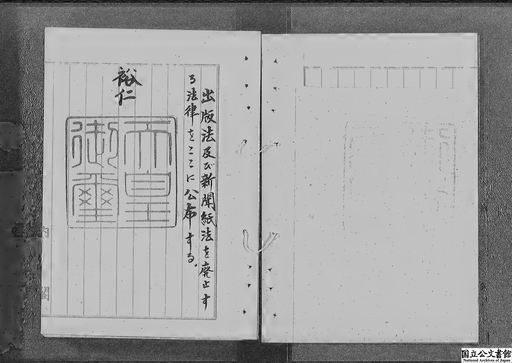 出版法及び新聞紙法を廃止す
る法律をここに公布する。
裕仁
天皇
御璽
内閣
国立公文書館
National Archives of Japan